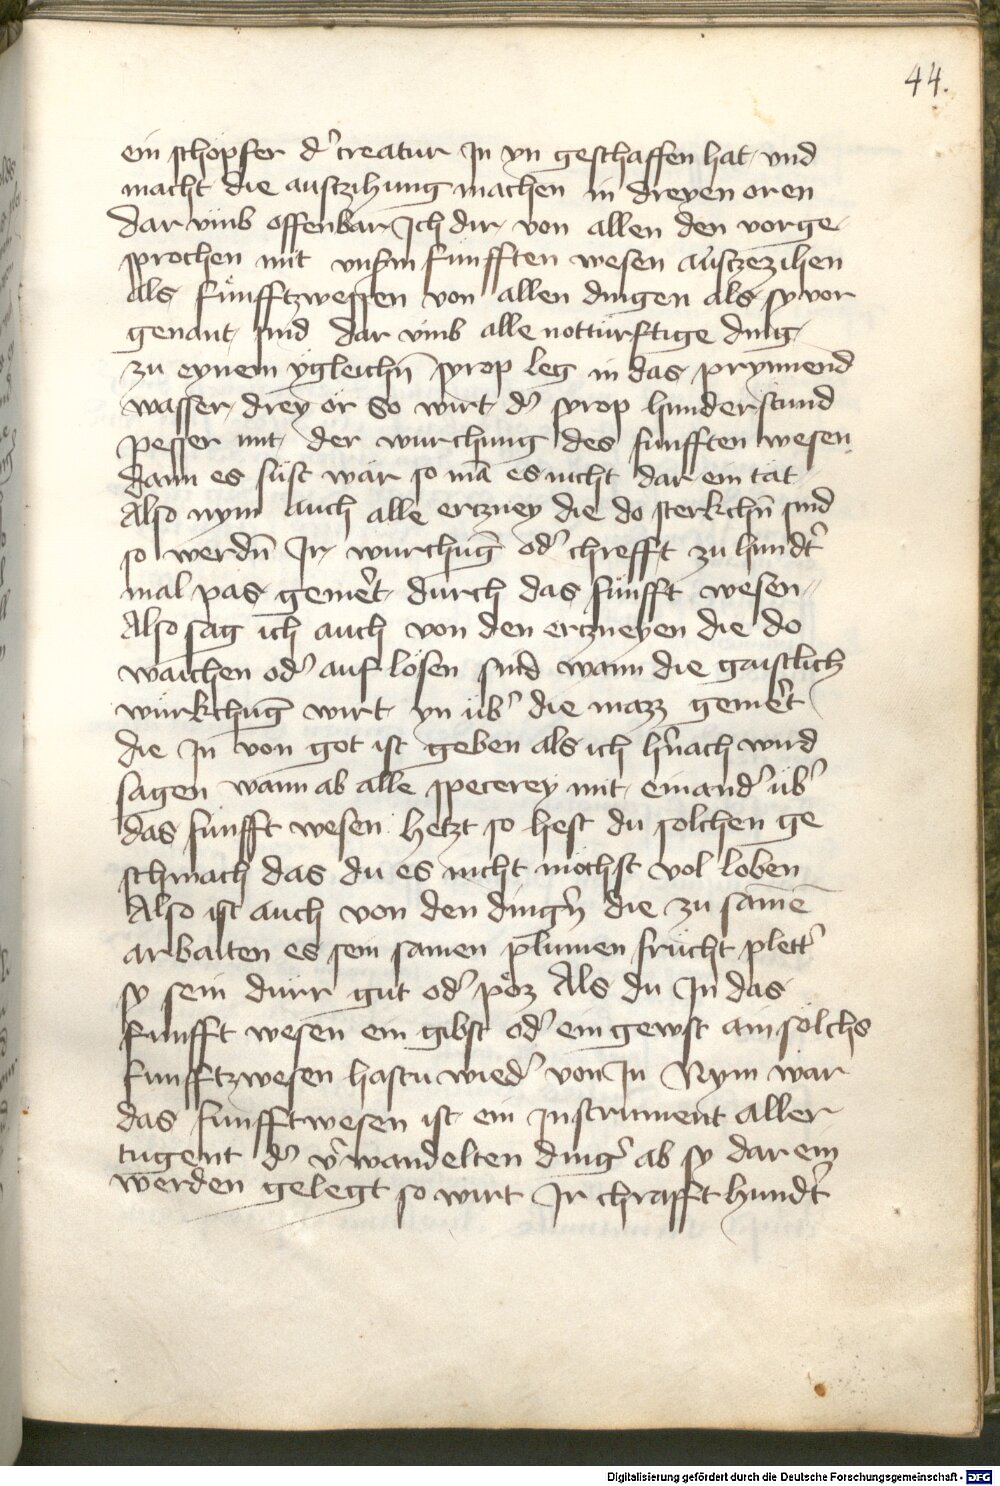 44.
ein schöpfer d' creatur In yn geschaffen hat und
macht die ausczihung machen in dreyen oren
dar vmb offenbar Ich dir von allen den vorge
sprochen mit vnserm fünfften wesen auszezihen
als fünfftzwessen von allen dingen als sy vor
genant sind dar vmb alle notturftige ding
zu eynem ygleichn̄ syrop leg in das prynnend
wasser drey ör So wirt d' syrop hunderstund
pesser mit der wurchung des funfften wesen
dann es süst wär so mā es nicht dar ein tät
Also nym auch alle ertzney die do sterkchn̄ sind
so werdn̄ Ir würchūg od' chrefft zu hundt'
mal pas gemert durch das fünfft wesen
Also sag ich auch von den ertzneyen die do
waichen od' auf lösen sind wann die gaistlich
würkchūg wirt yn üb' die mazz gemert
die In von got ist geben als ich h'nach wird
sagen wann ab alle specerey mit einand' üb'
das fünfft wesen hetzt so hest du solchen ge
schmach das du es nicht möchst vol loben
Also ist auch von den dingn̄ die zu samē
arbaiten es sein samen plümen frücht plett'
sy sein dürr gut od' pöz Als du In das
funfft wesen ein gibst od' ein gewst ain sölchs
funfftzwesen hastu wied' von In Nym war
das funfftwesen ist ein instrument aller
tugent d' v'wandelten ding' ab sy dar ein
werden gelegt so wirt Ir chrafft hundt'
Digitalisierung gefördert durch die Deutsche Forschungsgemeinschaft - DFG